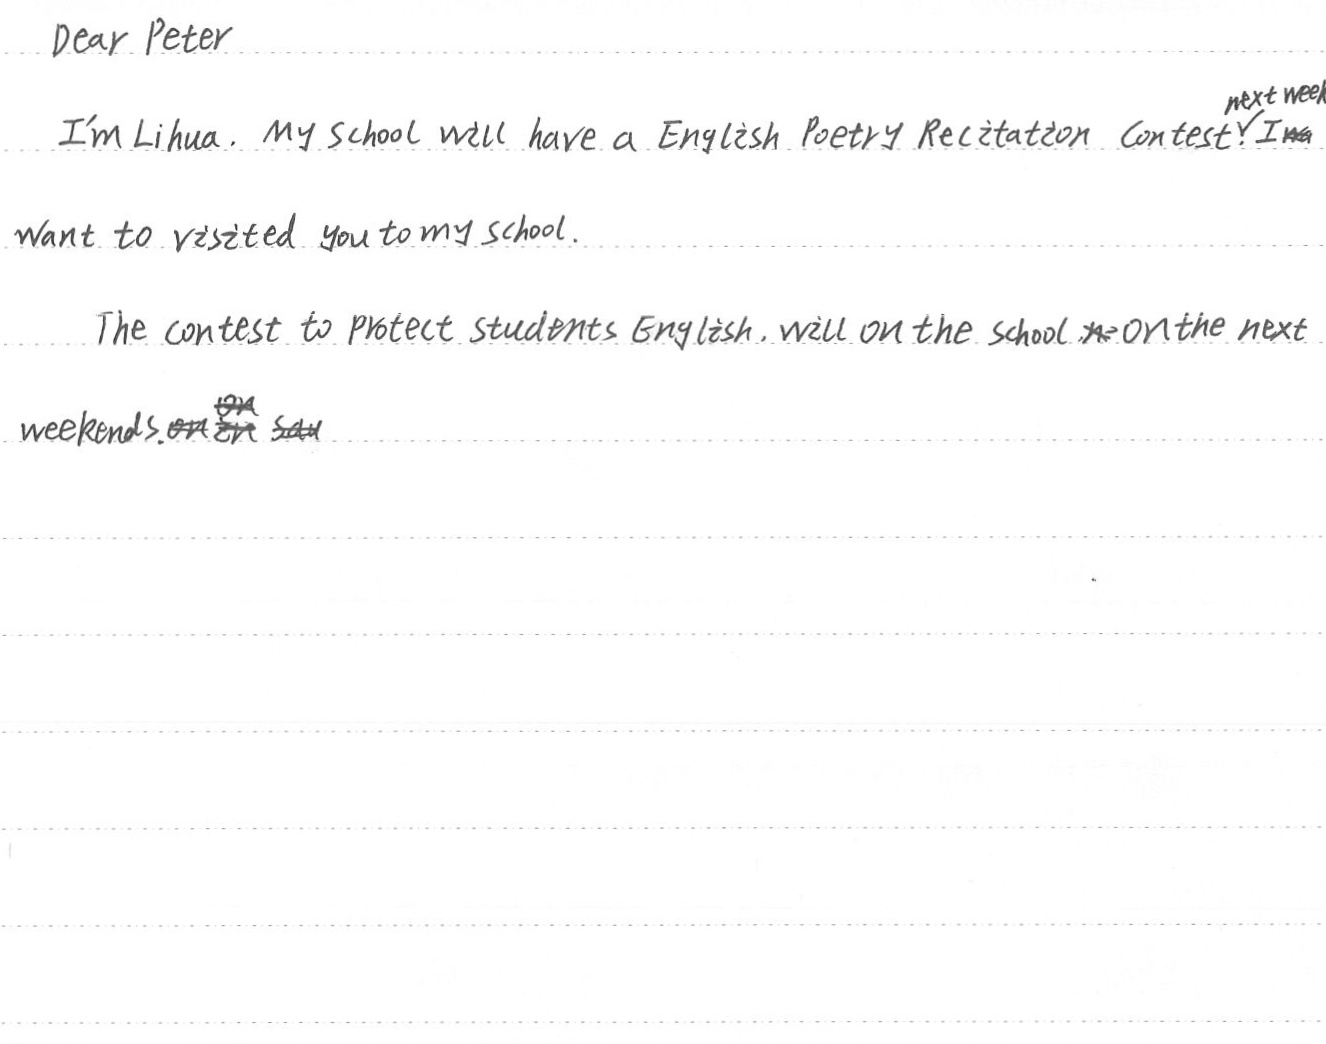 Dear Peter
I'm Lihua. My school will have a English Poetry Recitation Contest next week. I
want to visited you to my school.
The contest to protect students English. will on the school on the next
weekends.